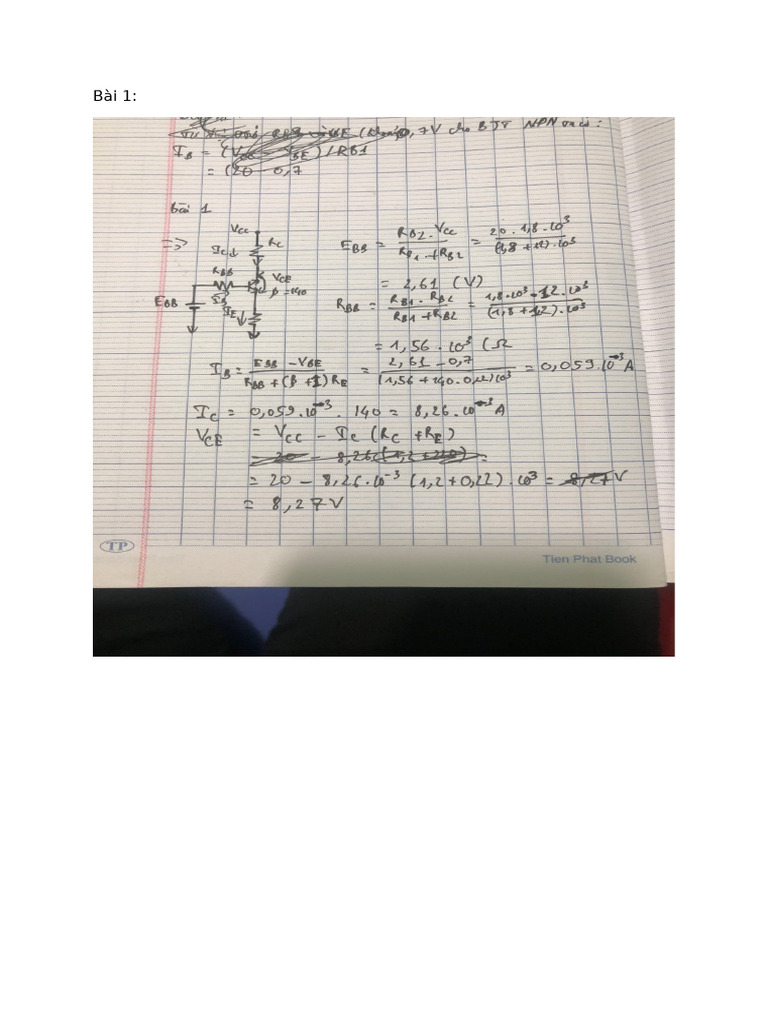 Bài 1:
0,7V cho BJT NPN ta có:
I_B = (V_CC - V_BE) / RB1
= (20 - 0,7
bài 1
V_CC
I_C↓ R_C
R_BB V_CE
β = 140
E_BB I_B I_E↓
=> E_BB = R_B2 . V_CC / R_B1 + R_B2 = 20 . 1,8 . 10^3 / (1,8 + 12) . 10^3
= 2,61 (V)
R_BB = R_B1 . R_B2 / R_B1 + R_B2 = 1,8 . 10^3 . 12 . 10^3 / (1,8 + 12) . 10^3
= 1,56 . 10^3 (Ω
I_B = E_BB - V_BE / R_BB + (β + 1) R_E = 2,61 - 0,7 / (1,56 + 140 . 0,22) 10^3 = 0,059 . 10^-3 A
I_C = 0,059 . 10^-3 . 140 = 8,26 . 10^-3 A
V_CE = V_CC - I_C (R_C + R_E)
= 20 - 8,26 (1,2 + 220) =
= 20 - 8,26 . 10^-3 (1,2 + 0,22) . 10^3 = 8,27 V
= 8,27 V
TP
Tien Phat Book